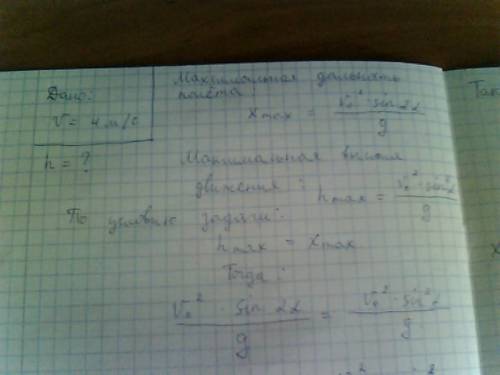 Дано:
V = 4 м/с
h = ?
Максимальная дальность
полёта
x max = V₀² · sin 2α / g
Максимальная высота
движения:
h max = V₀² · sin²α / g
По условию задачи:
h max = x max
Тогда:
V₀² · sin 2α / g = V₀² · sin²α / g
Так